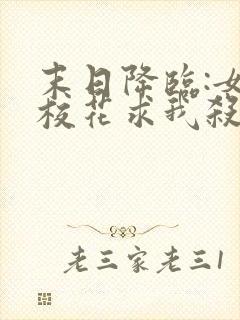 末日降臨:女
校花求我殺
老三家老三1